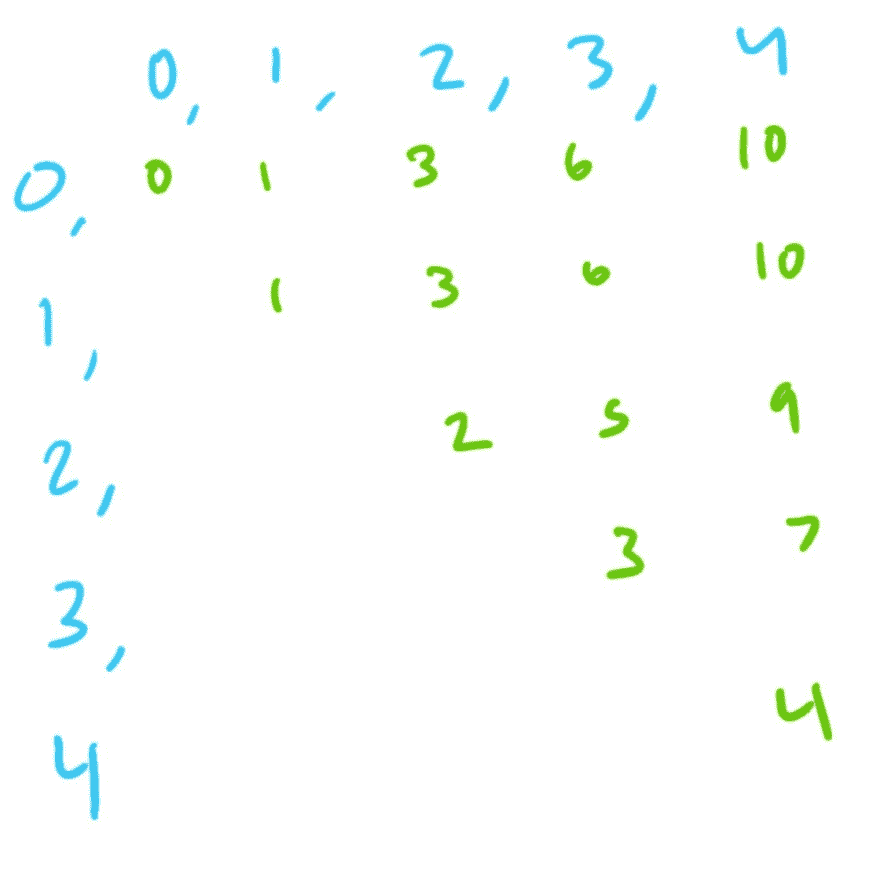 0, 1, 2, 3, 4
0, 0 1 3 6 10
1, 1 3 6 10
2, 2 5 9
3, 3 7
4 4